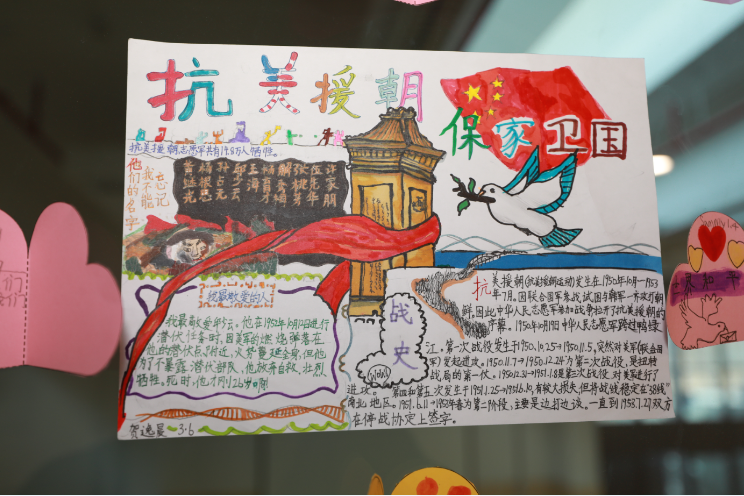 抗美援朝
保家卫国
抗美援朝志愿军共有19.8万人牺牲。
他们的名字
我不能
忘记
黄继光
杨根思
孙占元
邱少云
王海
杨育才
张桃芳
伍先华
许家朋
我最敬爱的人
我最敬爱邱少云。他在1952年10月12日进行
潜伏任务时,因美军的燃烧弹落在
他的潜伏点附近,火势蔓延全身,但他
为了不暴露潜伏部队,他放弃自救,壮烈
牺牲,死时,他才刚26岁啊!
战史
抗美援朝(抗美援朝运动)发生在1950年10月—1953
年7月。因联合国军参战,试图与韩军一齐攻打朝
鲜,因此中华人民志愿军参加战争拉开了抗美援朝的
序幕。1950年10月19日中华人民志愿军跨过鸭绿
江。第一次战役发生于1950.10.25→1950.11.5,突然对美军(联合国
军)发起进攻。1950.11.7→1950.12.24为第二次战役,是扭转
战局的第一仗。1950.12.31→1951.1.8是第三次战役,对美军进行了
进攻。第四和第五次发生于1951.1.25→1951.6.10,有较大损失,但将战线稳定在"38线"
南北地区。1951.6.11→1953年春为第二阶段,主要是边打边谈。一直到1953.7.27,双方
在停战协定上签字。
贺逸晨 — 3·6